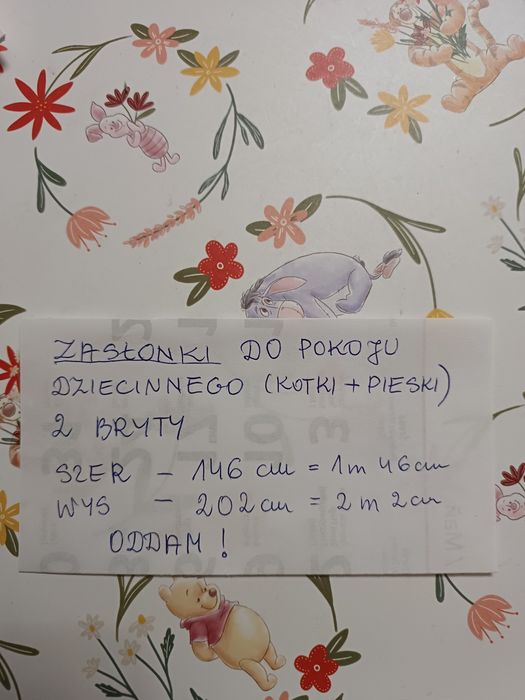 ZASŁONKI DO POKOJU
DZIECINNEGO (KOTKI + PIESKI)
2 BRYTY
SZER – 146 cm = 1m 46cm
WYS – 202cm = 2m 2cm
ODDAM!